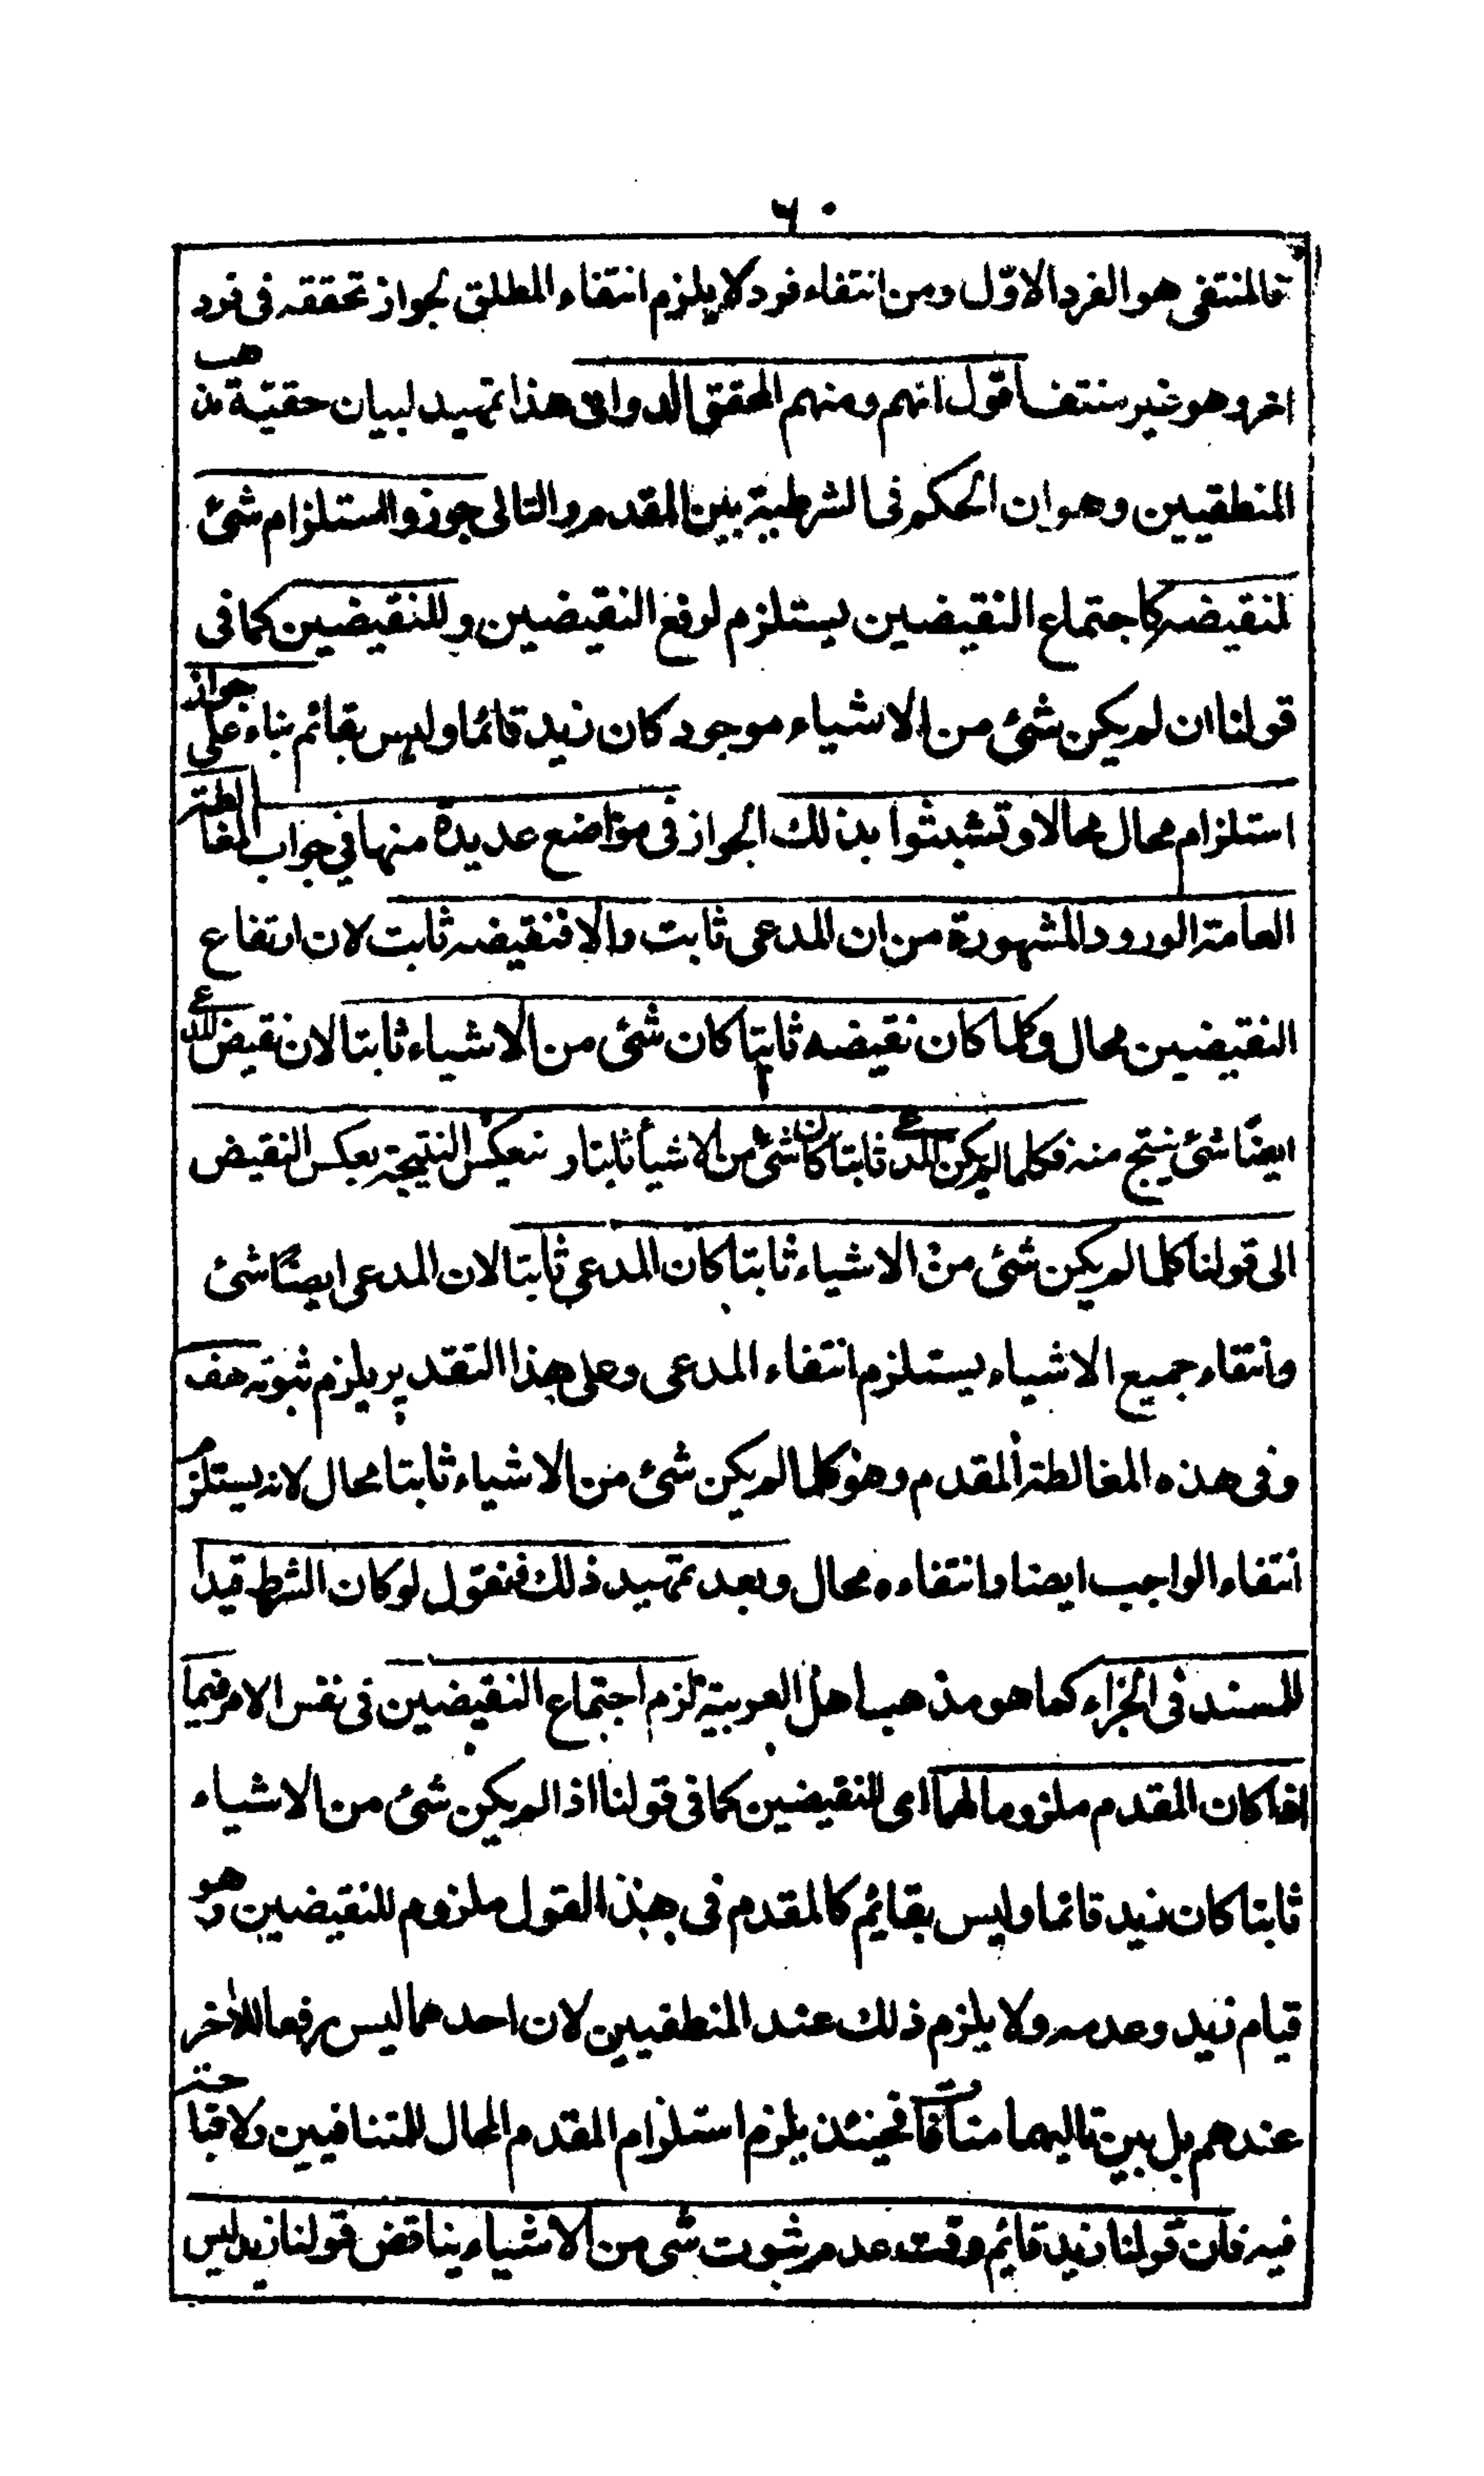 ٦٠
فالمنتفى هو الفرد الاوّل ومن انتفاء فرد لا يلزم انتفاء المطلق لجواز تحققه فى فرد
اخر وهو غير منتف اقول انهم ومنهم المحقق الدوانى هذا تمهيد لبيان حقيّة مذهب
المنطقيين وهو ان الحكم فى الشرطية بين المقدم والتالى جوزوا استلزام شئ
لنقيضه كاجتماع النقيضين يستلزم لرفع النقيضين وللنقيضين كما فى
قولنا ان لم يكن شئ من الاشياء موجود كان زيد قائما وليس بقائم بناء على جواز
استلزام محال محالا وتشبثوا بذلك الجواز فى مواضع عديدة منها فى جواب المغالطة
العامة الورود المشهورة من ان المدعى ثابت والا فنقيضه ثابت لان ارتفاع
النقيضين محال وكلما كان نقيضه ثابتا كان شئ من الاشياء ثابتا لان نقيض المدعى
ايضًا شئ ينتج منه فكلما لم يكن المدعى ثابتا كان شئ من الاشيأ ثابتا و تنعكس النتيجة بعكس النقيض
الى قولنا كلما لم يكن شئ من الاشياء ثابتا كان المدعى ثابتا لان المدعى ايضًا شئ
وانتقاء جميع الاشياء يستلزم انتفاء المدعى وعلى هذا التقدير يلزم ثبوته هف
وفى هذه المغالطة المقدم وهو كلما لم يكن شئ من الاشياء ثابتا محال لانه يستلزم
انتفاء الواجب ايضا وانتقاءه محال وبعد تمهيد ذلك فنقول لو كان الشرط قيدا
للمسند فى الجزاء كما هو مذهب اهل العربية لزم اجتماع النقيضين فى نفس الامر فيما
اذا كان المقدم ملزوما لهما اى للنقيضين كما فى قولنا اذا لم يكن شئ من الاشياء
ثابتا كان زيد قائما وليس بقائيم كالمقدم فى هذا القول ملزوم للنقيضين وهو
قيام زيد وعدمه ولا يلزم ذلك عند المنطقيين لان احدهما ليس برفعا للأخر
عندهم بل بين تاليهما منافاة فحينئذ يلزم استلزام المقدم المحال للمتنافيين ولا قباحة
فيه فان قولنا زيد قايم وقت عدم ثبوت شى من الاشياء يناقض قولنا زيد ليس